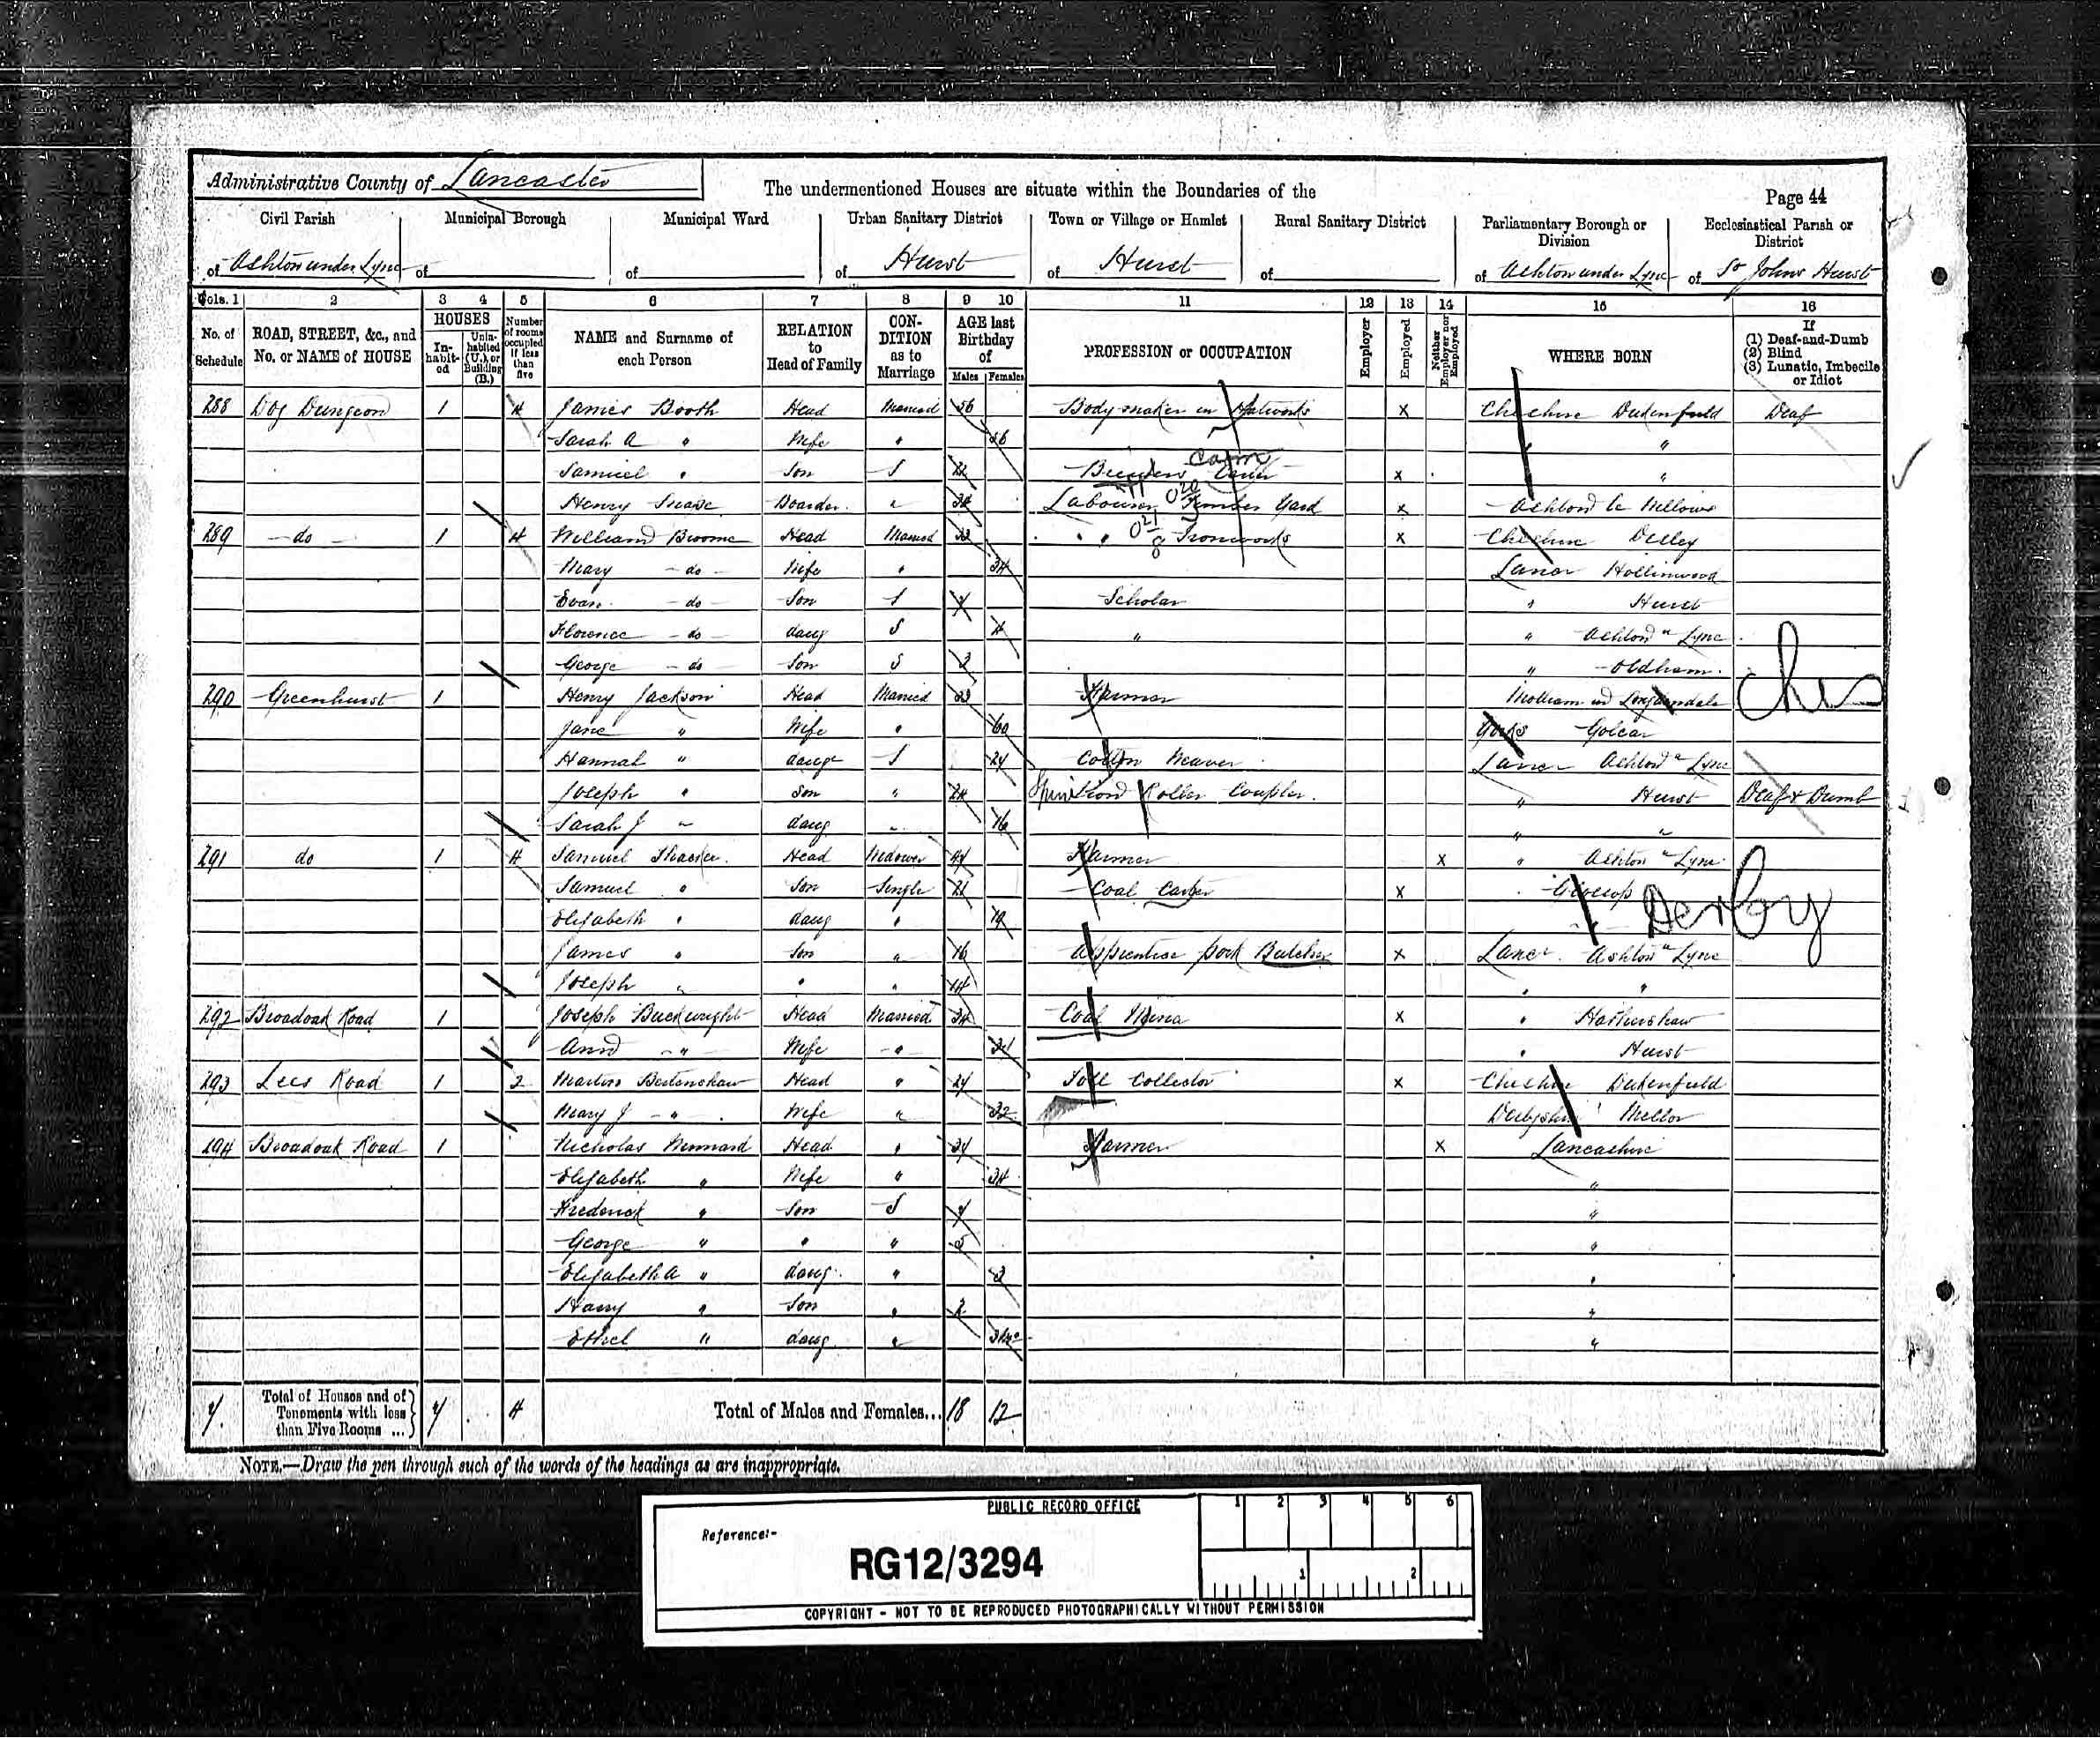 Administrative County of Lancaster
The undermentioned Houses are situate within the Boundaries of the
Page 44
Civil Parish Municipal Borough Municipal Ward Urban Sanitary District Town or Village or Hamlet Rural Sanitary District Parliamentary Borough or Division Ecclesiastical Parish or District
of Ashton under Lyne of of of Hurst of Hurst of of Ashton under Lyne of St Johns Hurst
Cols. 1 2 3 4 5 6 7 8 9 10 11 12 13 14 15 16
No. of Schedule ROAD, STREET, &c., and No. or NAME of HOUSE HOUSES In-habit-ed Unin-habited (U.), or Building (B.) Number of rooms occupied if less than five NAME and Surname of each Person RELATION to Head of Family CON-DITION as to Marriage AGE last Birthday of Males Females PROFESSION or OCCUPATION Employer Employed Neither Employer nor Employed WHERE BORN If (1) Deaf-and-Dumb (2) Blind (3) Lunatic, Imbecile or Idiot
288 Dog Dungeon 1 4 James Booth Head Married 56 Body maker in Hatworks X Cheshire Dukenfield Deaf
Sarah A " Wife " 56 "
Samuel " Son S X "
Henry Boarder " Labourer Timber Yard X
289 do 1 4 William Broome Head Married 33 " " Ironworks X Cheshire
Mary do Wife " 34 Lancr Hollinwood
Evan do Son S Scholar " Hurst
Florence do daug S 4 " " Ashton u Lyne
George do Son S 3 " Oldham
290 Greenhurst 1 Henry Jackson Head Married Farmer Mottram in Longdendale Ches
Jane " Wife " 60 Yorks Golcar
Hannah " daugr S Cotton Weaver Lancr Ashton u Lyne
Joseph " Son " 24 Roller Coupler " Hurst Deaf & Dumb
Sarah J " daug " 16 " "
291 do 1 4 Samuel Head Widower Farmer X " Ashton u Lyne
Samuel " Son Single 21 Coal Carter X Glossop Derby
Elizabeth " daug " 19 "
James " Son " 16 Apprentice Pork Butcher X Lancr Ashton u Lyne
Joseph " " " 14 " "
292 Broadoak Road 1 Joseph Buckwright Head Married 34 Coal X "
Ann " Wife " " Hurst
293 Lees Road 1 2 Martin Head " Toll Collector X Cheshire Dukenfield
Mary J " Wife " 32 Derbyshire Mellor
294 Broadoak Road 1 Nicholas Head " Farmer X Lancashire
Elizabeth " Wife " 34 "
Frederick " Son S "
George " " " 5 "
Elizabeth A " daug " 3 "
Harry " Son " 2 "
Ethel " daug " "
7 Total of Houses and of Tenements with less than Five Rooms ... 7 4 Total of Males and Females... 18 12
NOTE.—Draw the pen through such of the words of the headings as are inappropriate.
PUBLIC RECORD OFFICE
1 2 3 4 5 6
Reference:-
RG12/3294
1 2
COPYRIGHT - NOT TO BE REPRODUCED PHOTOGRAPHICALLY WITHOUT PERMISSION